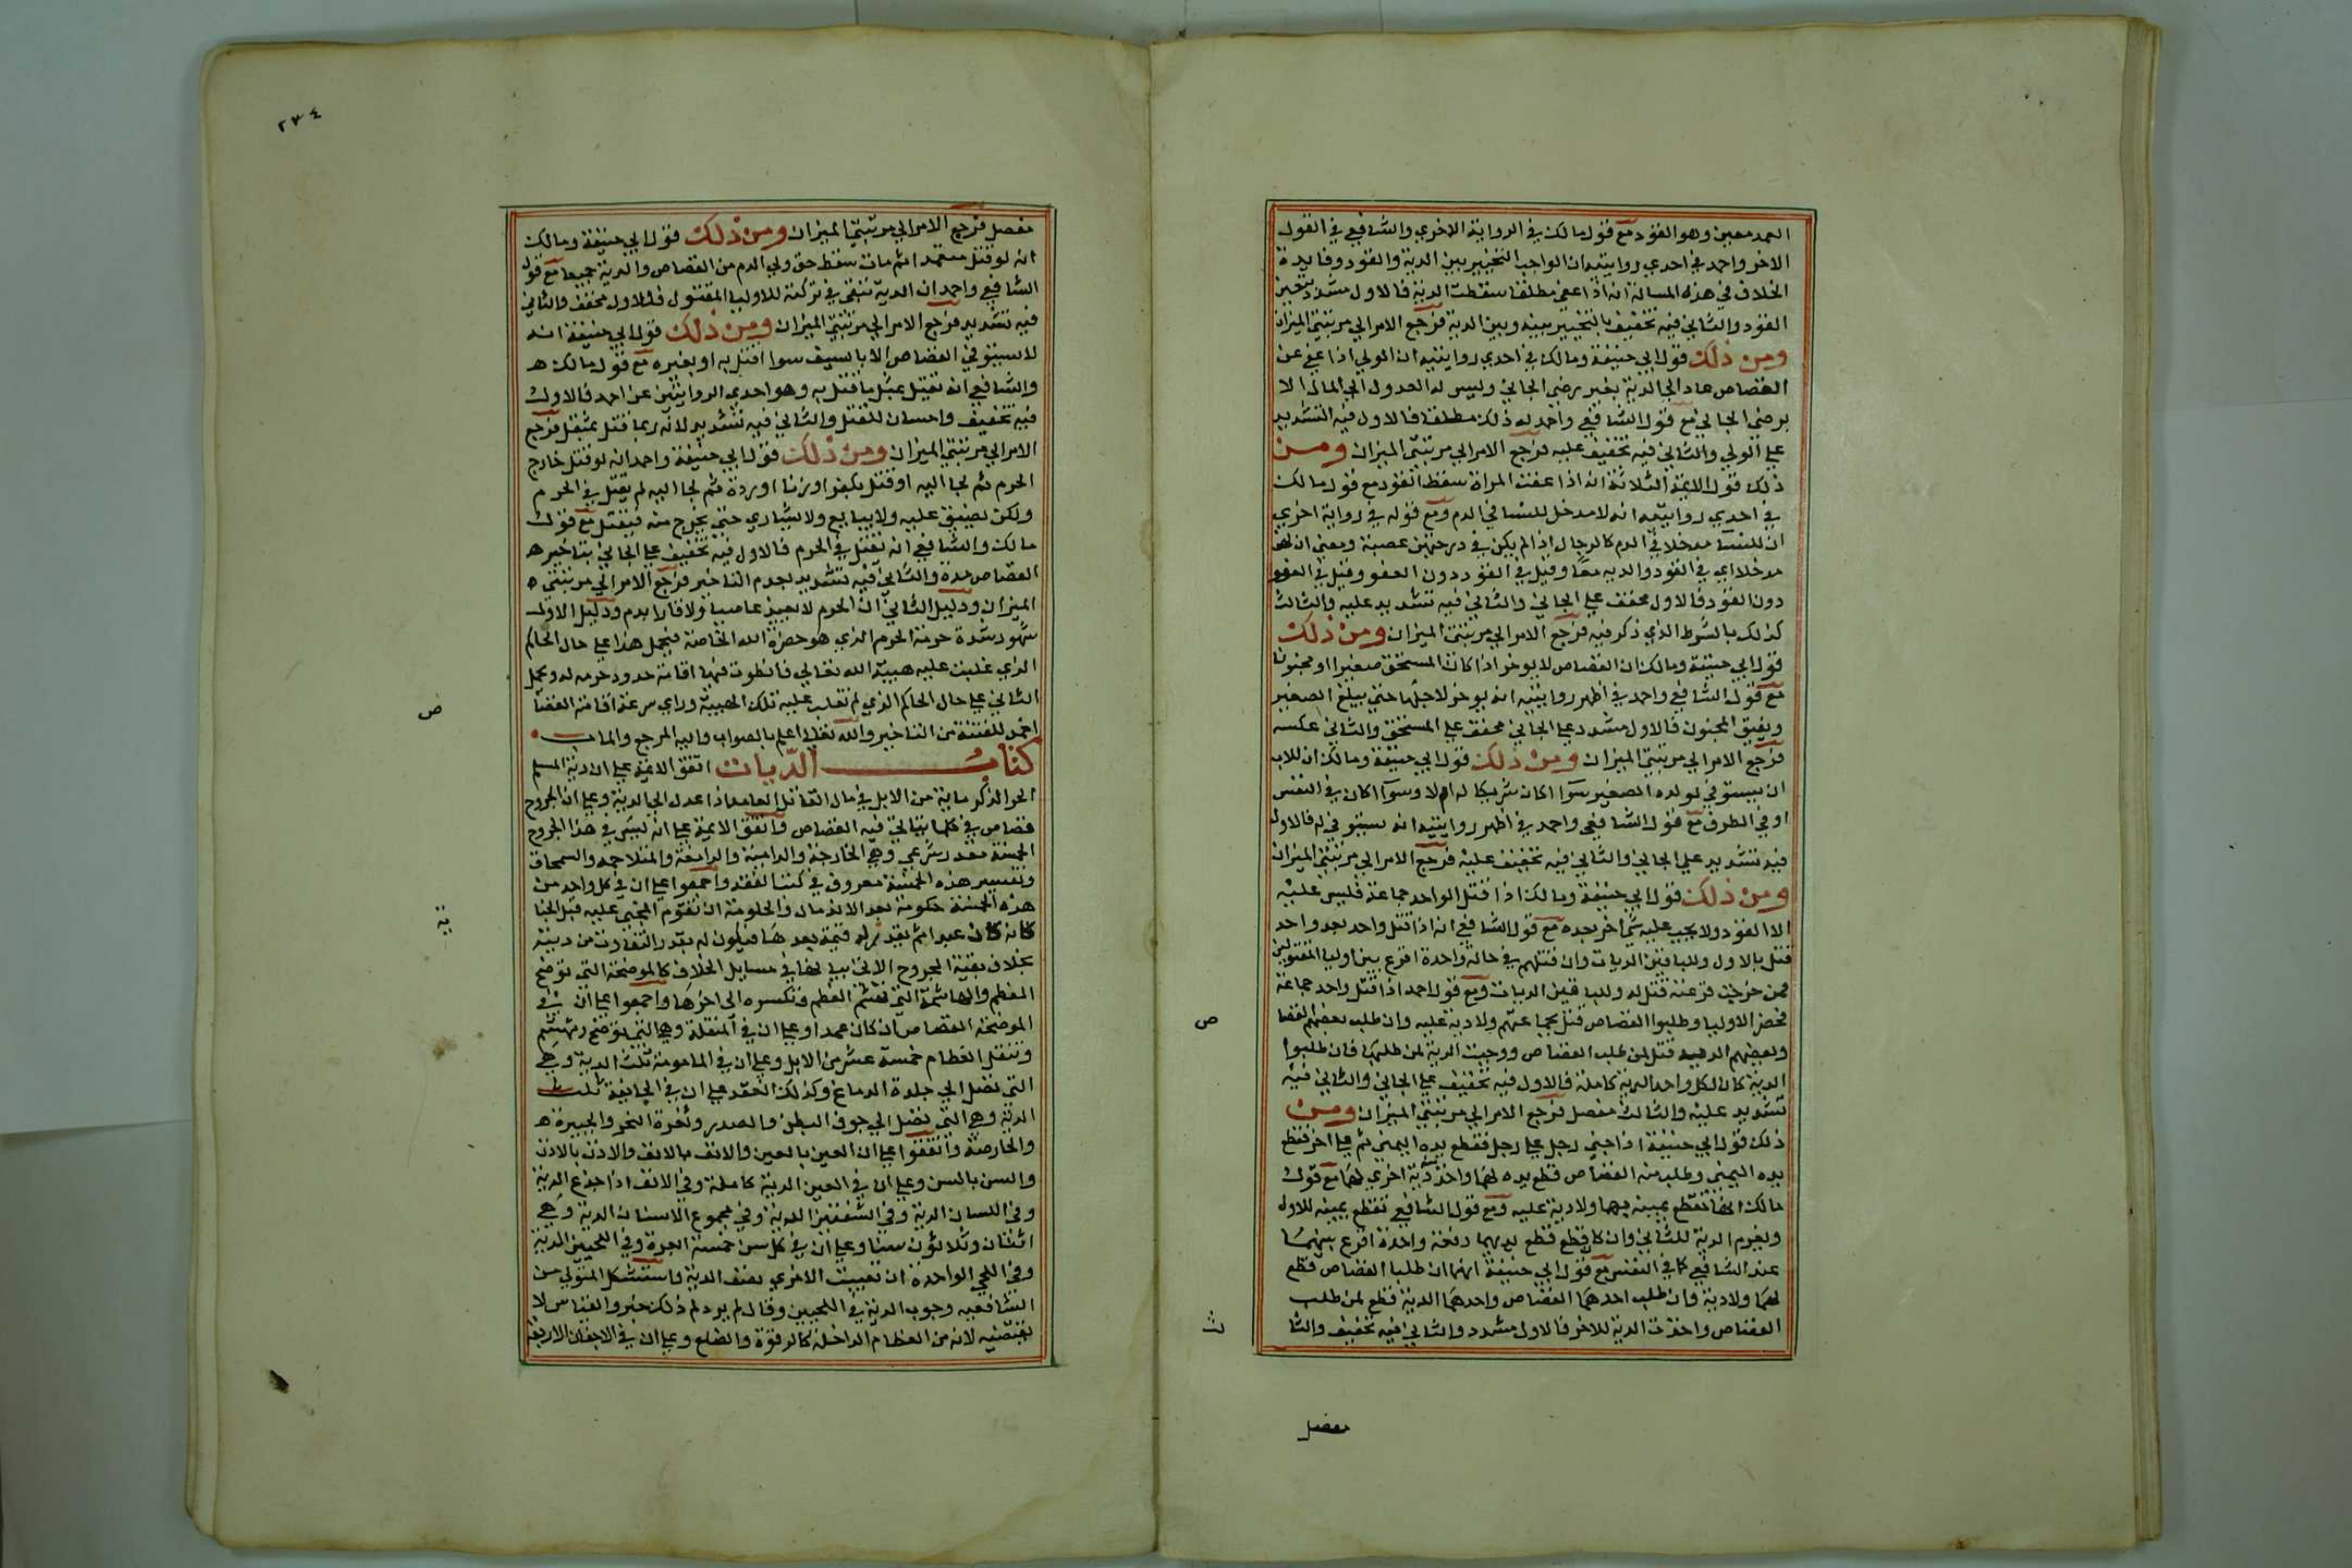 العمد معين وهو القود مع قول مالك في الرواية الاخري والشافعي في القول
الاخر واحمد في احدي روايتيه ان الواجب التخيير بين الدية والقود وفايدة
الخلاف في هذه المسالة انه اذا عفي مطلقا سقطت الدية فالاول مشدد بتعين
القود والثاني فيه تخفيف بالتخيير بينه وبين الدية فرجع الامر الي مرتبتي الميزان
ومن ذلك قول ابي حنيفة ومالك في احدي روايتيه ان الولي اذا عفي عن
القصاص عاد الي الدية بغير رضي الجاني وليس له العدول الي المال الا
برضي الجاني مع قول الشافعي واحمد له ذلك مطلقا فالاول فيه التشديد
علي الولي والثاني فيه تخفيف عليه فرجع الامر الي مرتبتي الميزان ومن
ذلك قول الايمة الثلاثة انه اذا عفت المراة سقط القود مع قول مالك
في احدي روايتيه انه لا مدخل للنسا في الدم ومع قوله في رواية اخري
ان للنسا مدخلا في الدم كالرجال اذا لم يكن في درجتهن عصبة ومعني ان لهن
مدخلا اي في القود والدية معا وقيل في القود دون العفو وقيل في العفو
دون القود فالاول مخفف علي الجاني والثاني فيه تشديد عليه والثالث
كذلك بالشرط الذي ذكر فيه فرجع الامر الي مرتبتي الميزان ومن ذلك
قول ابي حنيفة ومالك ان القصاص لا يوخر اذا كان المستحق صغيرا او مجنونا
مع قول الشافعي واحمد في اظهر روايتيه انه يوخر لاجلهما حتي يبلغ الصغير
ويفيق المجنون فالاول مشدد علي الجاني مخفف علي المستحق والثاني عكسه
فرجع الامر الي مرتبتي الميزان ومن ذلك قول ابي حنيفة ومالك ان للاب
ان يستوفي لولده الصغير سوا كان شريكا له ام لا وسوا كان في النفس
او في الطرف مع قول الشافعي واحمد في اظهر روايتيه انه يستوفي له فالاول
فيه تشديد علي الجاني والثاني فيه تخفيف عليه فرجع الامر الي مرتبتي الميزان
ومن ذلك قول ابي حنيفة ومالك اذا قتل الواحد جماعة فليس عليه
الا القود ولا يجب عليه شي اخر بعده مع قول الشافعي انه اذا قتل واحد بعد واحد
قتل بالاول وللباقين الديات وان قتلهم في حالة واحدة اقرع بين اوليا المقتولين
فمن خرجت قرعته قتل له وللباقين الديات ومع قول احمد اذا قتل واحد جماعة
فحضر الاوليا وطلبوا القصاص قتل بجماعتهم ولا دية عليه وان طلب بعضهم القصا
وبعضهم الدية قتل لمن طلب القصاص ووجبت الدية لمن طلبها فان طلبوا
الدية كان لكل واحد الدية كاملة فالاول فيه تخفيف علي الجاني والثاني فيه
تشديد عليه والثالث مفصل فرجع الامر الي مرتبتي الميزان ومن
ذلك قول ابي حنيفة اذا جني رجل علي رجل فقطع يده اليمني ثم علي اخر فقطع
يده اليمني وطلب منه القصاص قطع يده لهما واخذ دية اخري لهما مع قول
مالك انها تقطع يمينه بهما ولا دية عليه ومع قول الشافعي تقطع يمينه للاول
ويغرم الدية للثاني وان كا قطع قطع يديهما دفعة واحدة اقرع بينهما
عند الشافعي كما في النفس مع قول ابي حنيفة انهما ان طلبا القصاص قطع
لهما ولا دية وان طلب احدهما القصاص واحدهما الدية قطع لمن طلب
القصاص واخذت الدية للاخر فالاول مشدد والثاني فيه تخفيف والثا
ص
ث
مفصل
٢٣٤
مفصل فرجع الامر الي مرتبتي الميزان ومن ذلك قول ابي حنيفة ومالك
انه لو قتل متعمدا ثم مات سقط حق ولي الدم من القصاص والدية جميعا مع قول
الشافعي واحمد ان الدية تبقي في تركته للاوليا المقتول فالاول مخفف والثاني
فيه تشديد فرجع الامر الي مرتبتي الميزان ومن ذلك قول ابي حنيفة انه
لا يستوفي القصاص الا بالسيف سوا اقتل به او بغيره مع قول مالك
والشافعي انه يقتل بمثل ما قتل به وهو احدي الروايتين عن احمد فالاول
فيه تخفيف واحسان للقتل والثاني فيه تشديد لانه ربما قتل بمثقل فرجع
الامر الي مرتبتي الميزان ومن ذلك قول ابي حنيفة واحمد انه لو قتل خارج
الحرم ثم لجا اليه او قتل بكفر او زنا او ردة ثم لجا اليه لم يقتل في الحرم
ولكن يضيق عليه ولا يبايع ولا يشاري حتي يخرج منه فيقتل مع قول
مالك والشافعي انه يقتل في الحرم فالاول فيه تخفيف علي الجاني بتاخير
القصاص مدة والثاني فيه تشديد بعدم التاخير فرجع الامر الي مرتبتي
الميزان ودليل الثاني ان الحرم لا يعيذ عاصيا ولا فارا بدم ودليل الاول
شهود شدة حرمة الحرم الذي هو حضرة الله الخاصة فيحمل هذا علي حال الحاكم
الذي غلبت عليه هيبة الله تعالي فانطوت فيها اقامة حدود حرمه له ويحمل
الثاني علي حال الحاكم الذي لم تغلب عليه تلك الهيبة وراي سرعة اقامة القصا
اخمد للفتنة من التاخير والله تعالي اعلم بالصواب واليه المرجع والماب
كتاب الديات اتفق الايمة علي ان دية المسلم
الحر الذكر ماية من الابل في مال القاتل العامد اذا عدل الي الدية وعلي ان الجروح
قصاص في كل ما يتاتي فيه القصاص واتفق الايمة علي انه ليس في هذا الجروح
الخمسة مقدر شرعي وهي الخارجة والدامية والدامعة والمتلاحمة والسمحاق
وتفسير هذه الخمسة معروف في كتب الفقه واجمعوا علي ان في كل واحد من
هذه الخمسة حكومة بعد الاندمال والحكومة ان يقوم المجني عليه قبل الجنا
كانه كان عبدا ثم يقدر له قيمة بعدها فيكون له بقدر التفاوت من ديته
بخلاف بقية الجروح الاتي بيانها في مسايل الخلاف كالموضحة التي توضح
العظم والهاشمة التي تهشم العظم وتكسره الي اخرها واجمعوا علي ان في
الموضحة القصاص ان كان عمدا وعلي ان في المنقلة وهي التي توضح وتهشم
وتنقل العظام خمسة عشر من الابل وعلي ان في المامومة ثلث الدية وهي
التي تصل الي جلدة الدماغ وكذلك العقد علي ان في الجايفة ثلث
الدية وهي التي تصل الي جوف البطن والصدر وثغرة النحر والجبيرة
والخارصة واتفقوا علي ان العين بالعين والانف بالانف والاذن بالاذن
والسن بالسن وعلي ان في العين الدية كاملة وفي الانف اذا جدع الدية
وفي اللسان الدية وفي الشفتين الدية وفي مجموع الاسنان الدية وهي
اثنتان وثلاثون سنا وعلي ان في كل سن خمسة ابعرة وفي اللحيين الدية
وفي اللحي الواحدة ان بقيت الاخري نصف الدية واستشكل المتولي من
الشافعية وجوب الدية في اللحيين وقال لم يرد لم ذلك خبر والقياس لا
يقتضيه لانه من العظام الداخلة كالترقوة والضلع وعلي ان في الاجفان الاربعة
ص
ية